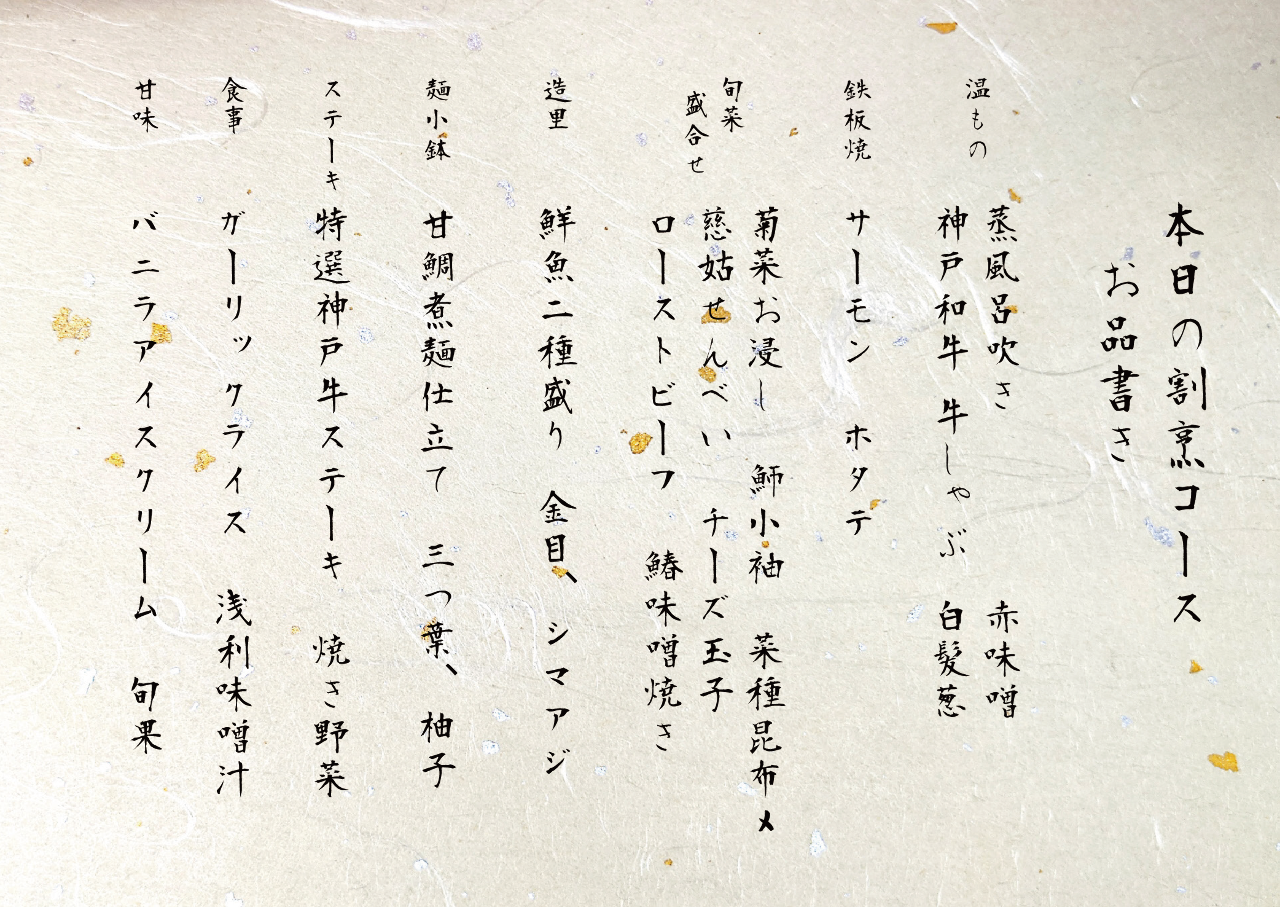 本日の割烹コース
お品書き
温もの
蒸風呂吹き 赤味噌
神戸和牛 牛しゃぶ 白髪葱
鉄板焼
サーモン ホタテ
旬菜
盛合せ
菊菜お浸し 鰤小袖 菜種昆布〆
慈姑せんべい チーズ玉子
ローストビーフ 鰆味噌焼き
造里
鮮魚二種盛り 金目、シマアジ
麺小鉢
甘鯛煮麺仕立て 三つ葉、柚子
ステーキ
特選神戸牛ステーキ 焼き野菜
食事
ガーリックライス 浅利味噌汁
甘味
バニラアイスクリーム 旬果